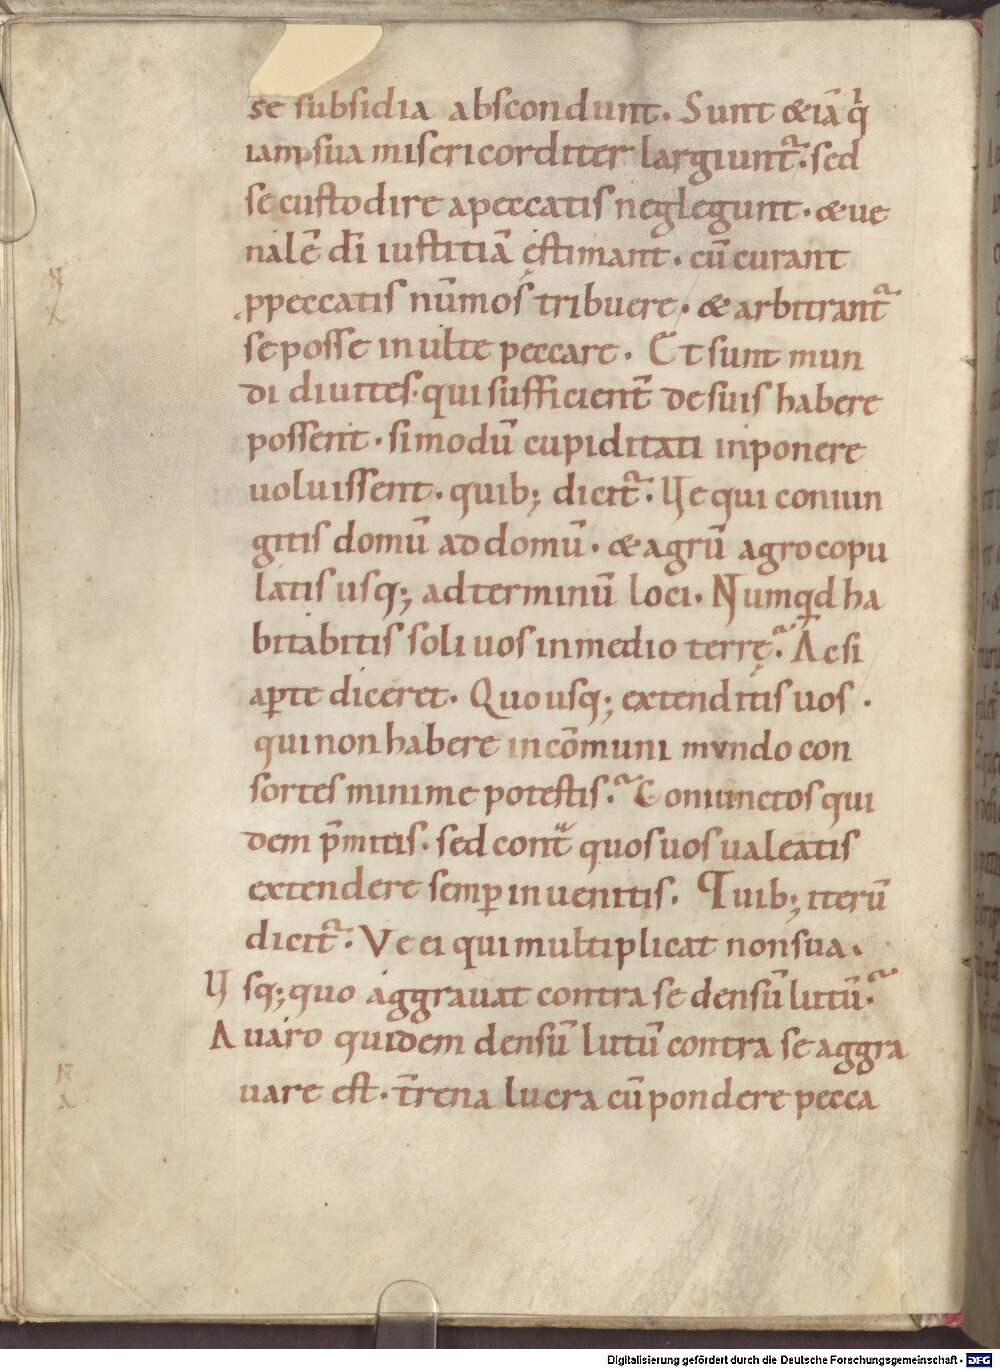 se subsidia abscondunt. Sunt &iā q̇
iam sua misericorditer largiunt᷑. sed
se custodire apeccatis neglegunt. & ue
nalē dī iustitiā ęstimant. cū curant
ꝓpeccatis nūmos tribuere. & arbitrant᷑
se posse inulte peccare. Et sunt mun
di diuites. qui sufficient᷑ de suis habere
possent. simodū cupiditati inponere
uoluissent. quib; dicit᷑. Ue qui coniun
gitis domū ad domū. & agrū agro copu
latis usq; ad terminū loci. Numqd ha
bitabitis soli uos in medio terrę. Ac si
aꝑte diceret. Quousq; extenditis uos.
qui non habere in cōmuni mundo con
sortes minime potestis. Coniunctos qui
dem p̄mitis. sed cont᷑ quos uos ualeatis
extendere semꝑ inuenitis. Quib; iterū
dicit᷑. Ve ei qui multiplicat non sua.
Usq; quo aggrauat contra se densū lutū.
Auaro quidem densū lutū contra se aggra
uare est. t̄rena lucra cū pondere pecca
Digitalisierung gefördert durch die Deutsche Forschungsgemeinschaft - DFG